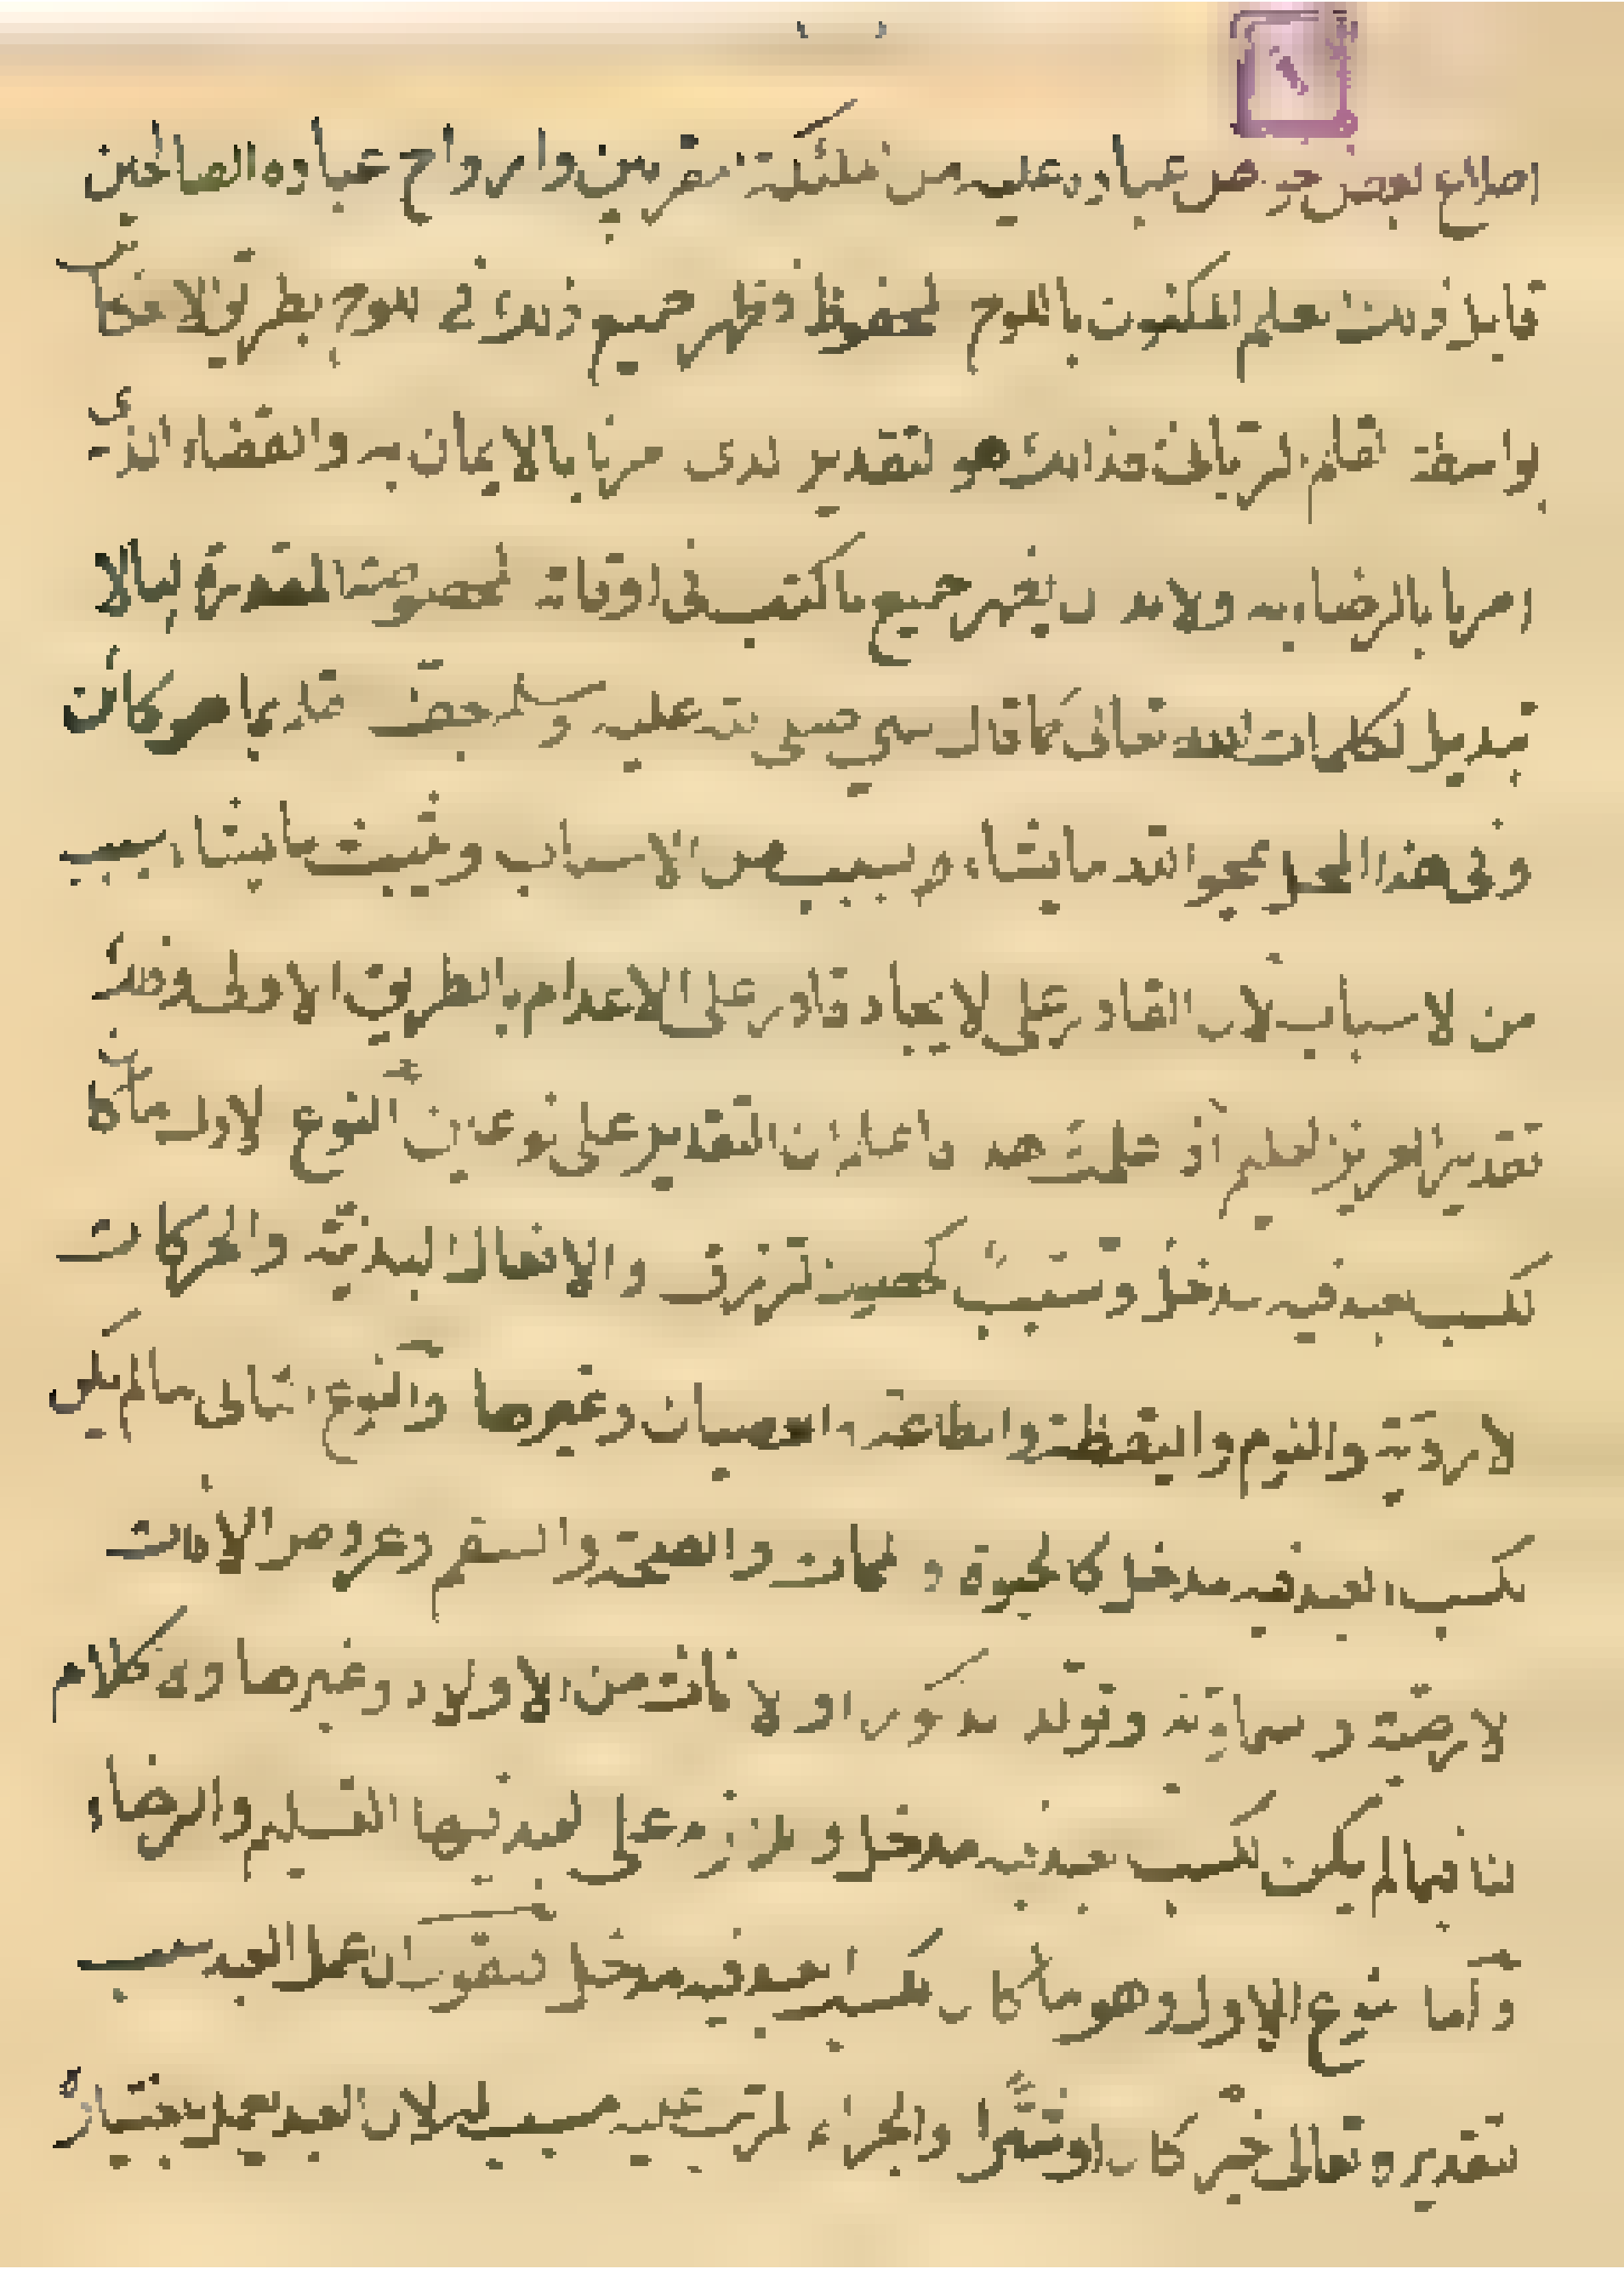 اطلاع بعض خواص عباده عليه من ملئكة مقربين وارواح عباده الصالحين
قابل ذلك القلم المكنون باللوح المحفوظ فظهر جميع ذلك في اللوح بطريق الانعكاس
بواسطة القلم الرباني فذلك هو التقدير الذي امرنا بالايمان به والقضاء الذي
امرنا بالرضاء به ولابد ان يظهر جميع ما كتب في اوقاته المخصوصة المقدرة له اذ لا
تبديل لكلمات الله تعالى كما قال النبي صلى الله عليه وسلم جف القلم بما هو كائن
وفي هذا المحل يمحو الله ما يشاء بسبب من الاسباب ويثبت ما يشاء بسبب
من الاسباب لان القادر على الايجاد قادر على الاعدام بالطريق الاولى وذلك
تقدير العزيز العليم اذا علمت هذا فاعلم ان التقدير على نوعين النوع الاول ما كان
لكسب العبد فيه مدخل وتسبب كتحصيل الرزق والافعال البدنية والحركات
الارادية والنوم واليقظة والطاعة والعصيان وغيرها والنوع الثاني ما لم يكن
لكسب العبد فيه مدخل كالحيوة والممات والصحة والسقم وعروض الآفات
الارضية والسماوية وتولد الذكور او الاناث من الاولاد وغيرها ولا كلام
لنا فيما لم يكن لكسب العبد فيه مدخل ويلزم على العبد فيها التسليم والرضاء
وأما النوع الاول وهو ما كان لكسب العبد فيه مدخل فنقول ان عمل العبد بسبب
تقديره تعالى خير كان او شرا والجزاء المترتب عليه بسبب لان العبد يعمل باختياره